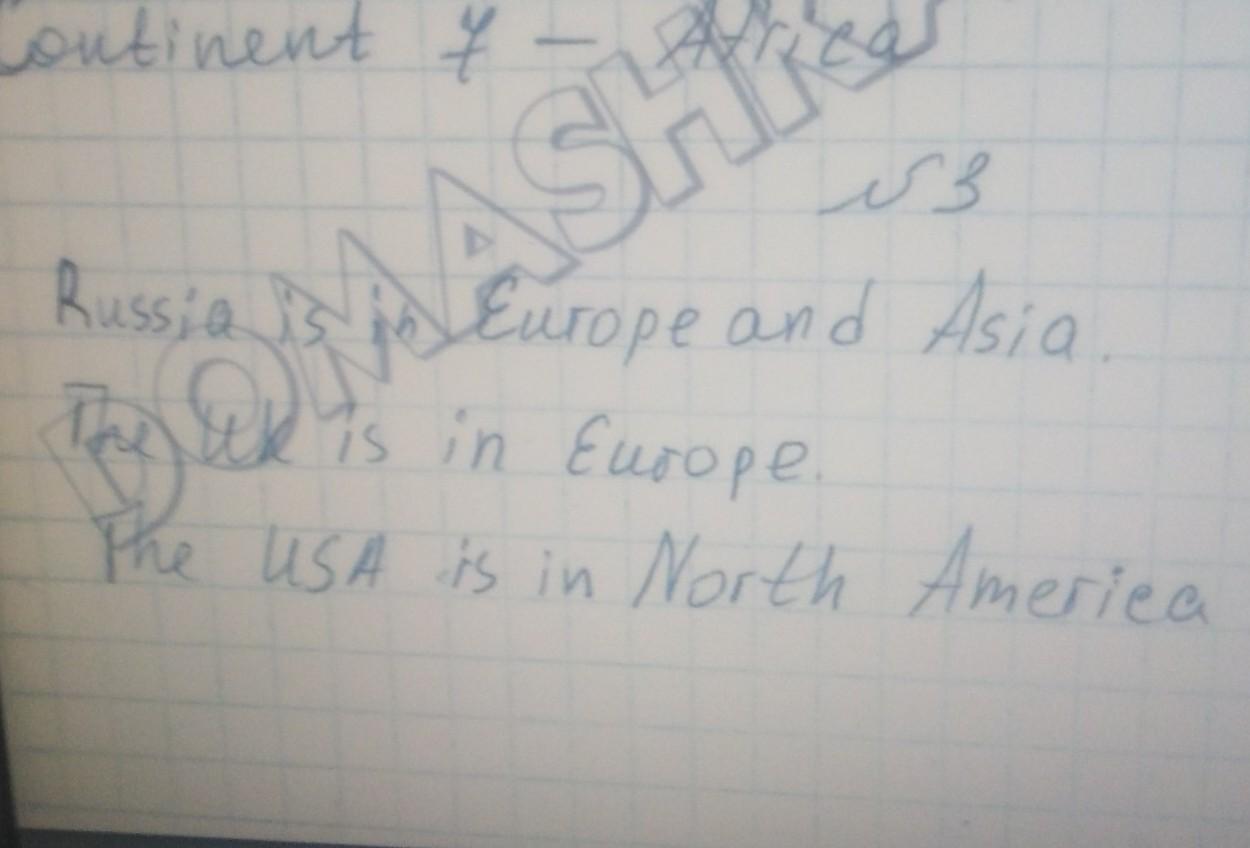 Continent 7 – Africa
№3
Russia is in Europe and Asia.
The UK is in Europe.
The USA is in North America
DOMASHKA